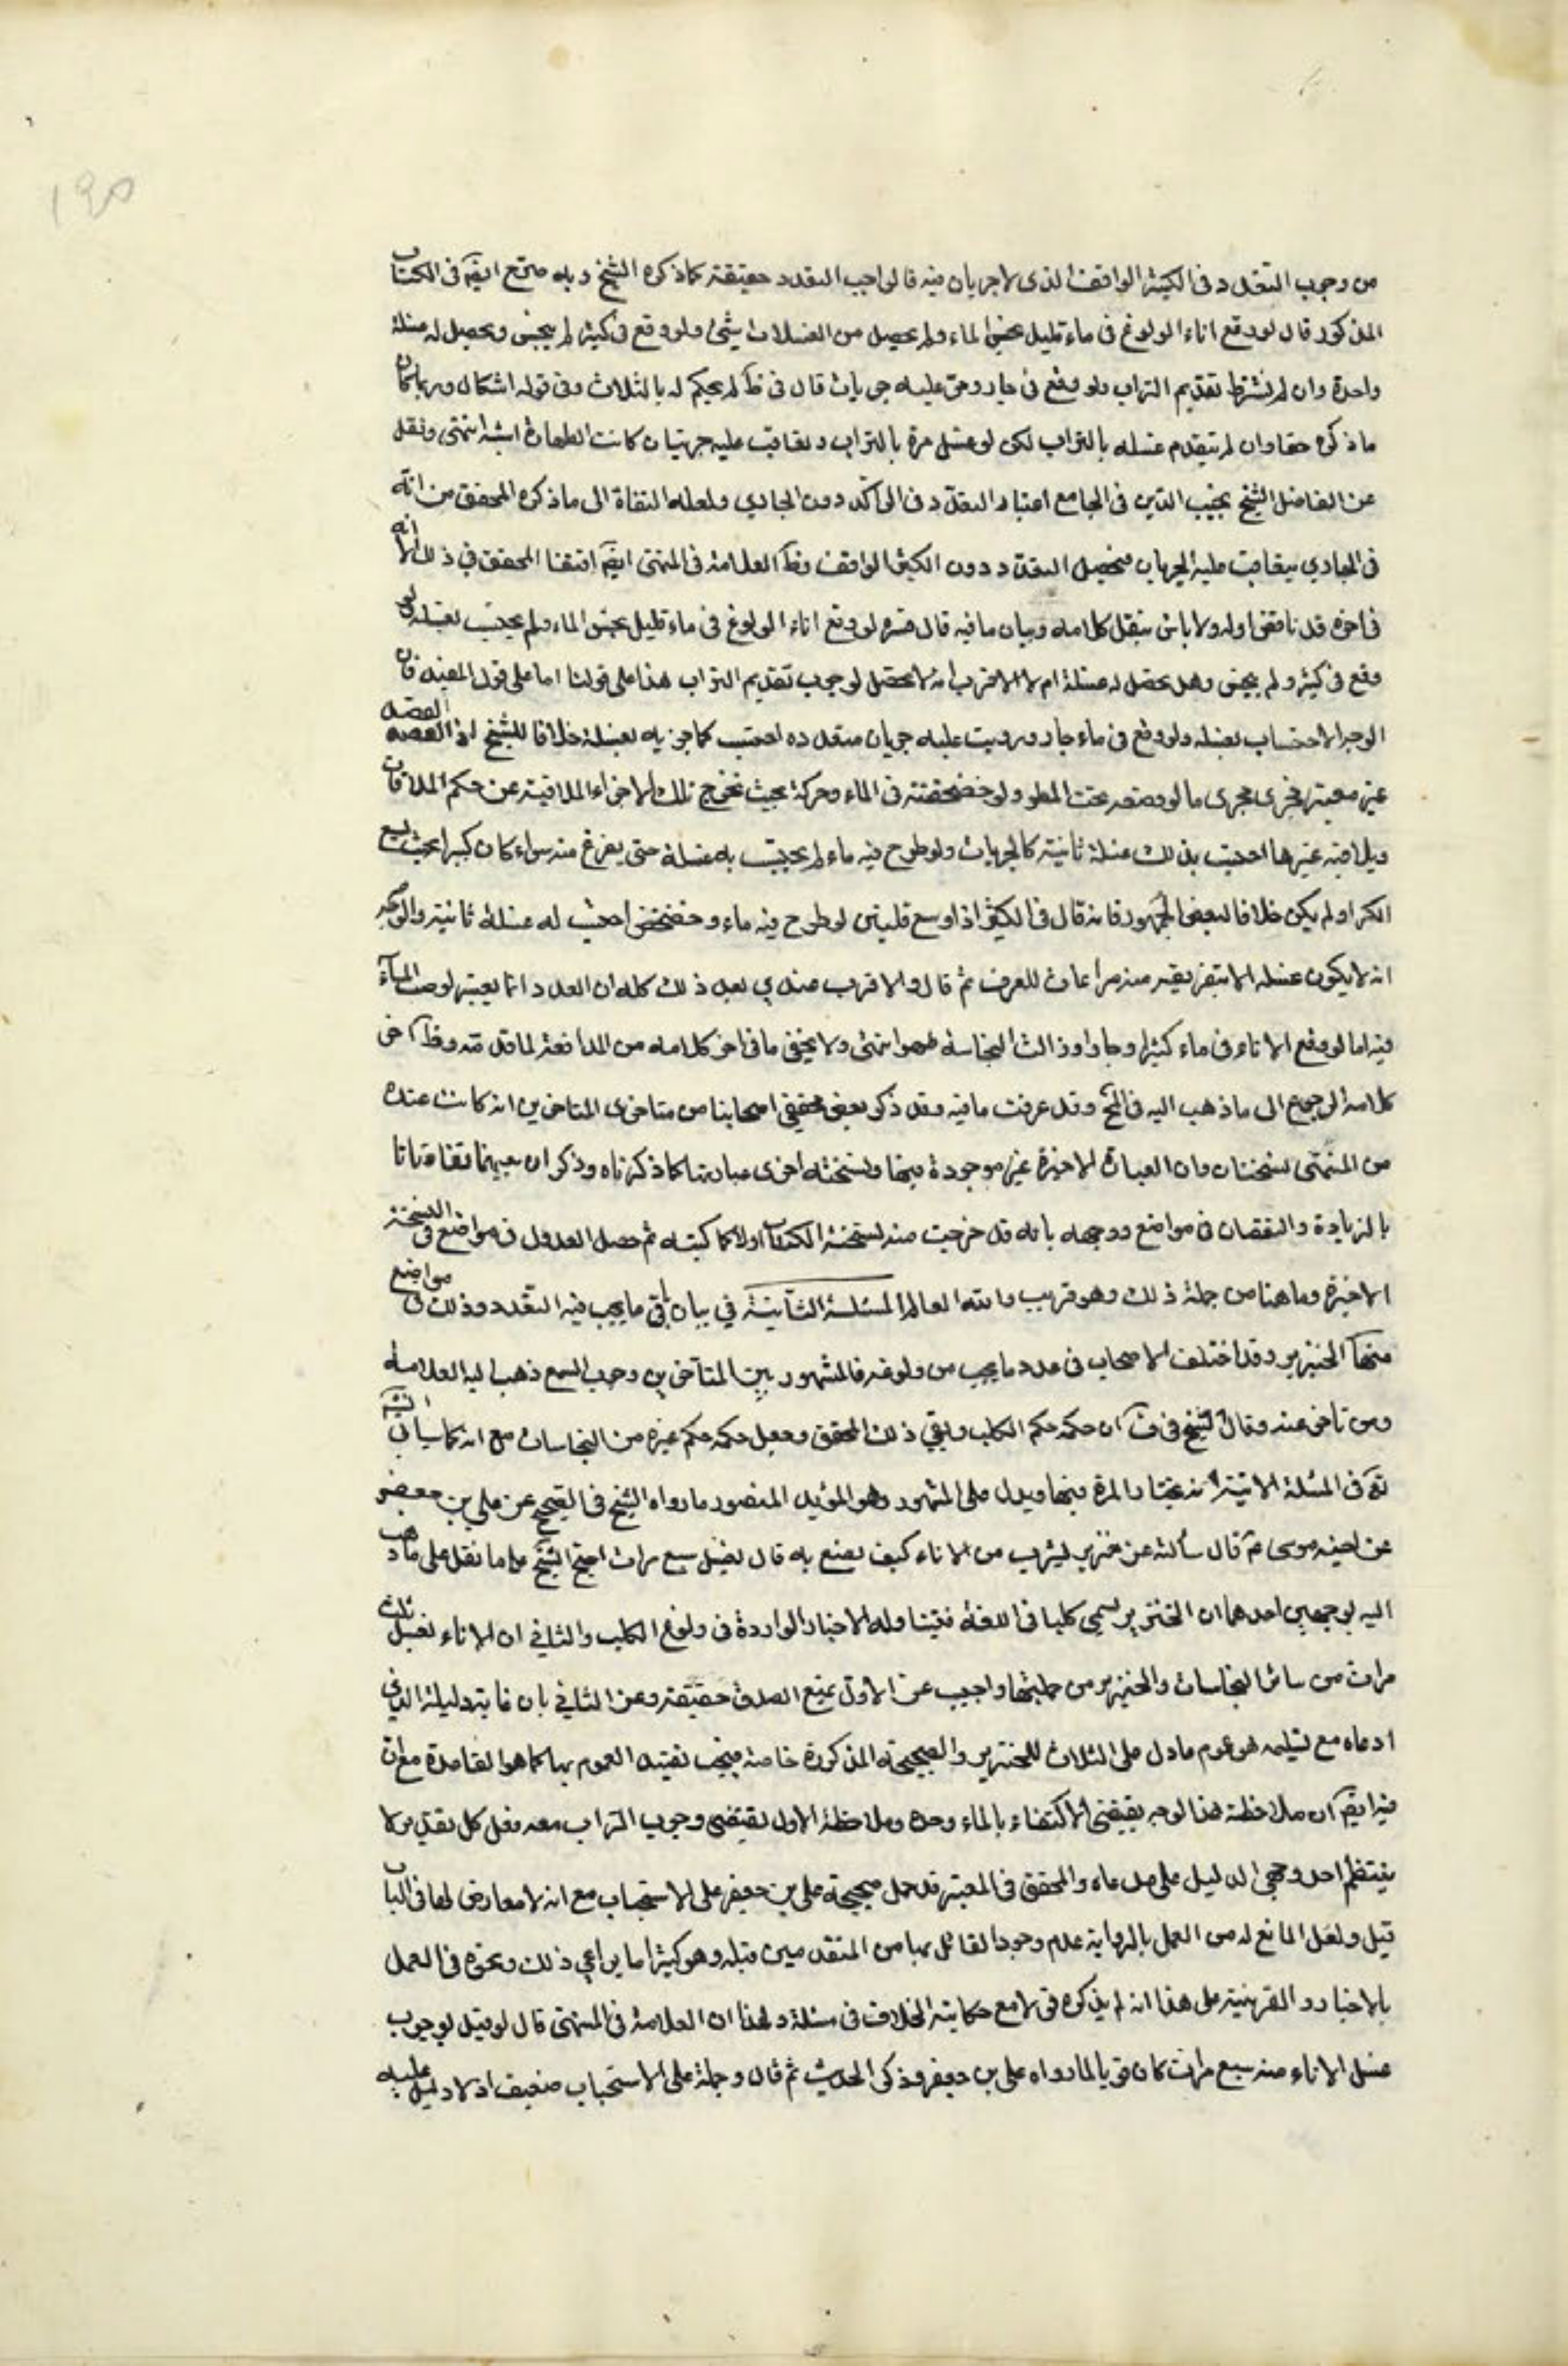 ١٩٥
من وجوب التعدد في الكثير الواقف الذي لا جريان فيه فالواجب التعدد حقيقة كما ذكره الشيخ وبه صرح ايضَ في الكتاب
المذكور قال لو وقع اناء الولوغ في ماء قليل نجس الماء ولم يحصل من الغسلات شيئ ولو وقع في كثير لم ينجس وحصل له غسلة
واحدة وان لم نشترط تقديم التراب ولو وقع في جار ومر عليه جريات قال في ط لم يحكم له بالثلاث وفي قوله اشكال وربما كان
ما ذكره حقا وان لم يتقدم غسله بالتراب لكن لو غسل مرة بالتراب وتعاقبت عليه جريتان كانت الطهارة اشبه انتهى ونقل
عن الفاضل الشيخ نجيب الدين في الجامع اعتبار التعدد في الراكد دون الجاري ولعله التفاة الى ما ذكره المحقق من انه
في الجاري يتعاقب عليه الجريات فيحصل التعدد دون الكثير الواقف وظَ العلامة في المنتهى ايضَ اقتفا المحقق في ذلك الا انه
في اخره قد ناقض اوله ولا باس بنقل كلامه وبيان ما فيه قال قده لو وقع اناء الولوغ في ماء قليل نجس الماء ولم يحتسب بغسله ولو
وقع في كثير ولم ينجس وهل يحصل له غسلة ام لا الاقرب انه لا يحصل لوجوب تقديم التراب هذا على قولنا اما على قول المفيد فان
الوجه الاحتساب بغسله ولو وقع في ماء جار ومرت عليه جريان متعدده احتسب كل جريه بغسلة خلافا للشيخ اذ القصد
غير معتبر فجرى مجرى ما لو وضعه تحت المطر ولو خضخضته في الماء وحركه بحيث تخرج تلك الاجزاء الملاقية عن حكم الملاقات
ويلاقيه غيرها احتسب بذلك غسلة ثانية كالجريات ولو طرح فيه ماء لم يحتسب به غسلة حتى يفرغ منه سواء كان كبيرا بحيث يسع
الكر او لم يكن خلافا لبعض الجمهور فانه قال في الكبير اذا وسع قلتين لو طرح فيه ماء وخضخض احتسب له غسلة ثانية والوجه
انه لا يكون غسله الا بتفريغه منه مراعات للعرف ثم قال والاقرب عندي بعد ذلك كله ان العدد انما يعتبر لو صب الماء
فيه اما لو وقع الاناء في ماء كثير او جار او ذالت النجاسة طهر انتهى ولا يخفى ما في اخر كلامه من المدافعة لما قدمه وظَ اخر
كلامه الرجوع الى ما ذهب اليه في لف وقد عرفت ما فيه وقد ذكر بعض محققي اصحابنا من متاخرى المتاخرين انه كانت عنده
من المنتهى نسختان وان العبارة الاخيرة غير موجودة فيها ونسخته اخرى عبارتها كما ذكرناه وذكر ان بينهما تفاوتا
بالزيادة والنقصان في مواضع ووجهه بانه قد خرجت منه نسخة الكتاب اولا كما كتبه ثم حصل العدول في مواضع في النسخة
الاخيرة وما هنا من جملة ذلك وهو قريب والله العالم المسئلة الثانية في بيان باقي ما يجب فيه التعدد وذلك في مواضع
منها الخنزير وقد اختلف الاصحاب في عدد ما يجب من ولوغه فالمشهور بين المتاخرين وجوب السبع ذهب اليه العلامة
ومن تاخر عنه وقال الشيخ في ف ان حكمه حكم الكلب وبقي ذلك المحقق وجعل حكمه حكم غيره من النجاسات مع انه كما سياتي انش
تع في المسئلة الاتية انه يختار المرة فيها ويدل على المشهور وهو المؤيد المنصور ما رواه الشيخ في الصحيح عن علي بن جعفر
عن اخيه موسى عَ قال سألته عن خنزير يشرب من الاناء كيف يصنع به قال يغسل سبع مرات احتج الشيخ على ما نقل على ما ذهب
اليه بوجهين احدهما ان الخنزير يسمى كلبا في اللغة فتتناوله الاخبار الواردة في ولوغ الكلب والثاني ان الاناء يغسل ثلث
مرات من سائر النجاسات والخنزير من جملتها واجيب عن الاول بمنع الصدق حقيقة وعن الثاني بان غاية دليله الذي
ادعاه مع تسليمه هو عموم ما دل على الثلاث للخنزير والصحيحة المذكورة خاصة فيجب تقييد العموم بها كما هو القاعدة مع ان
فيه ايضَ ان ملاحظة هذا الوجه يقتضى الاكتفاء بالماء وحده وملاحظة الاول يقتضى وجوب التراب معه فعلى كل تقدير لا
ينتظم احد وجهي الدليل على مدعاه والمحقق في المعتبر قد حمل صحيحة على بن جعفر على الاستحباب مع انه لا معارض لها في الباب
قيل ولعل المانع له من العمل بالرواية عدم وجود القائل بها من المتقدمين قبله وهو كثيرا ما يراعي ذلك ونحوه في العمل
بالاخبار والقرينة على هذا انه لم يذكره قولا مع حكايته الخلاف في مسئلة ولهذا ان العلامة في المنتهى قال لو قيل لوجوب
غسل الاناء منه سبع مرات كان قويا لما رواه على بن جعفر وذكر الحديث ثم قال وحمله على الاستحباب ضعيف اذ لا دليل عليه